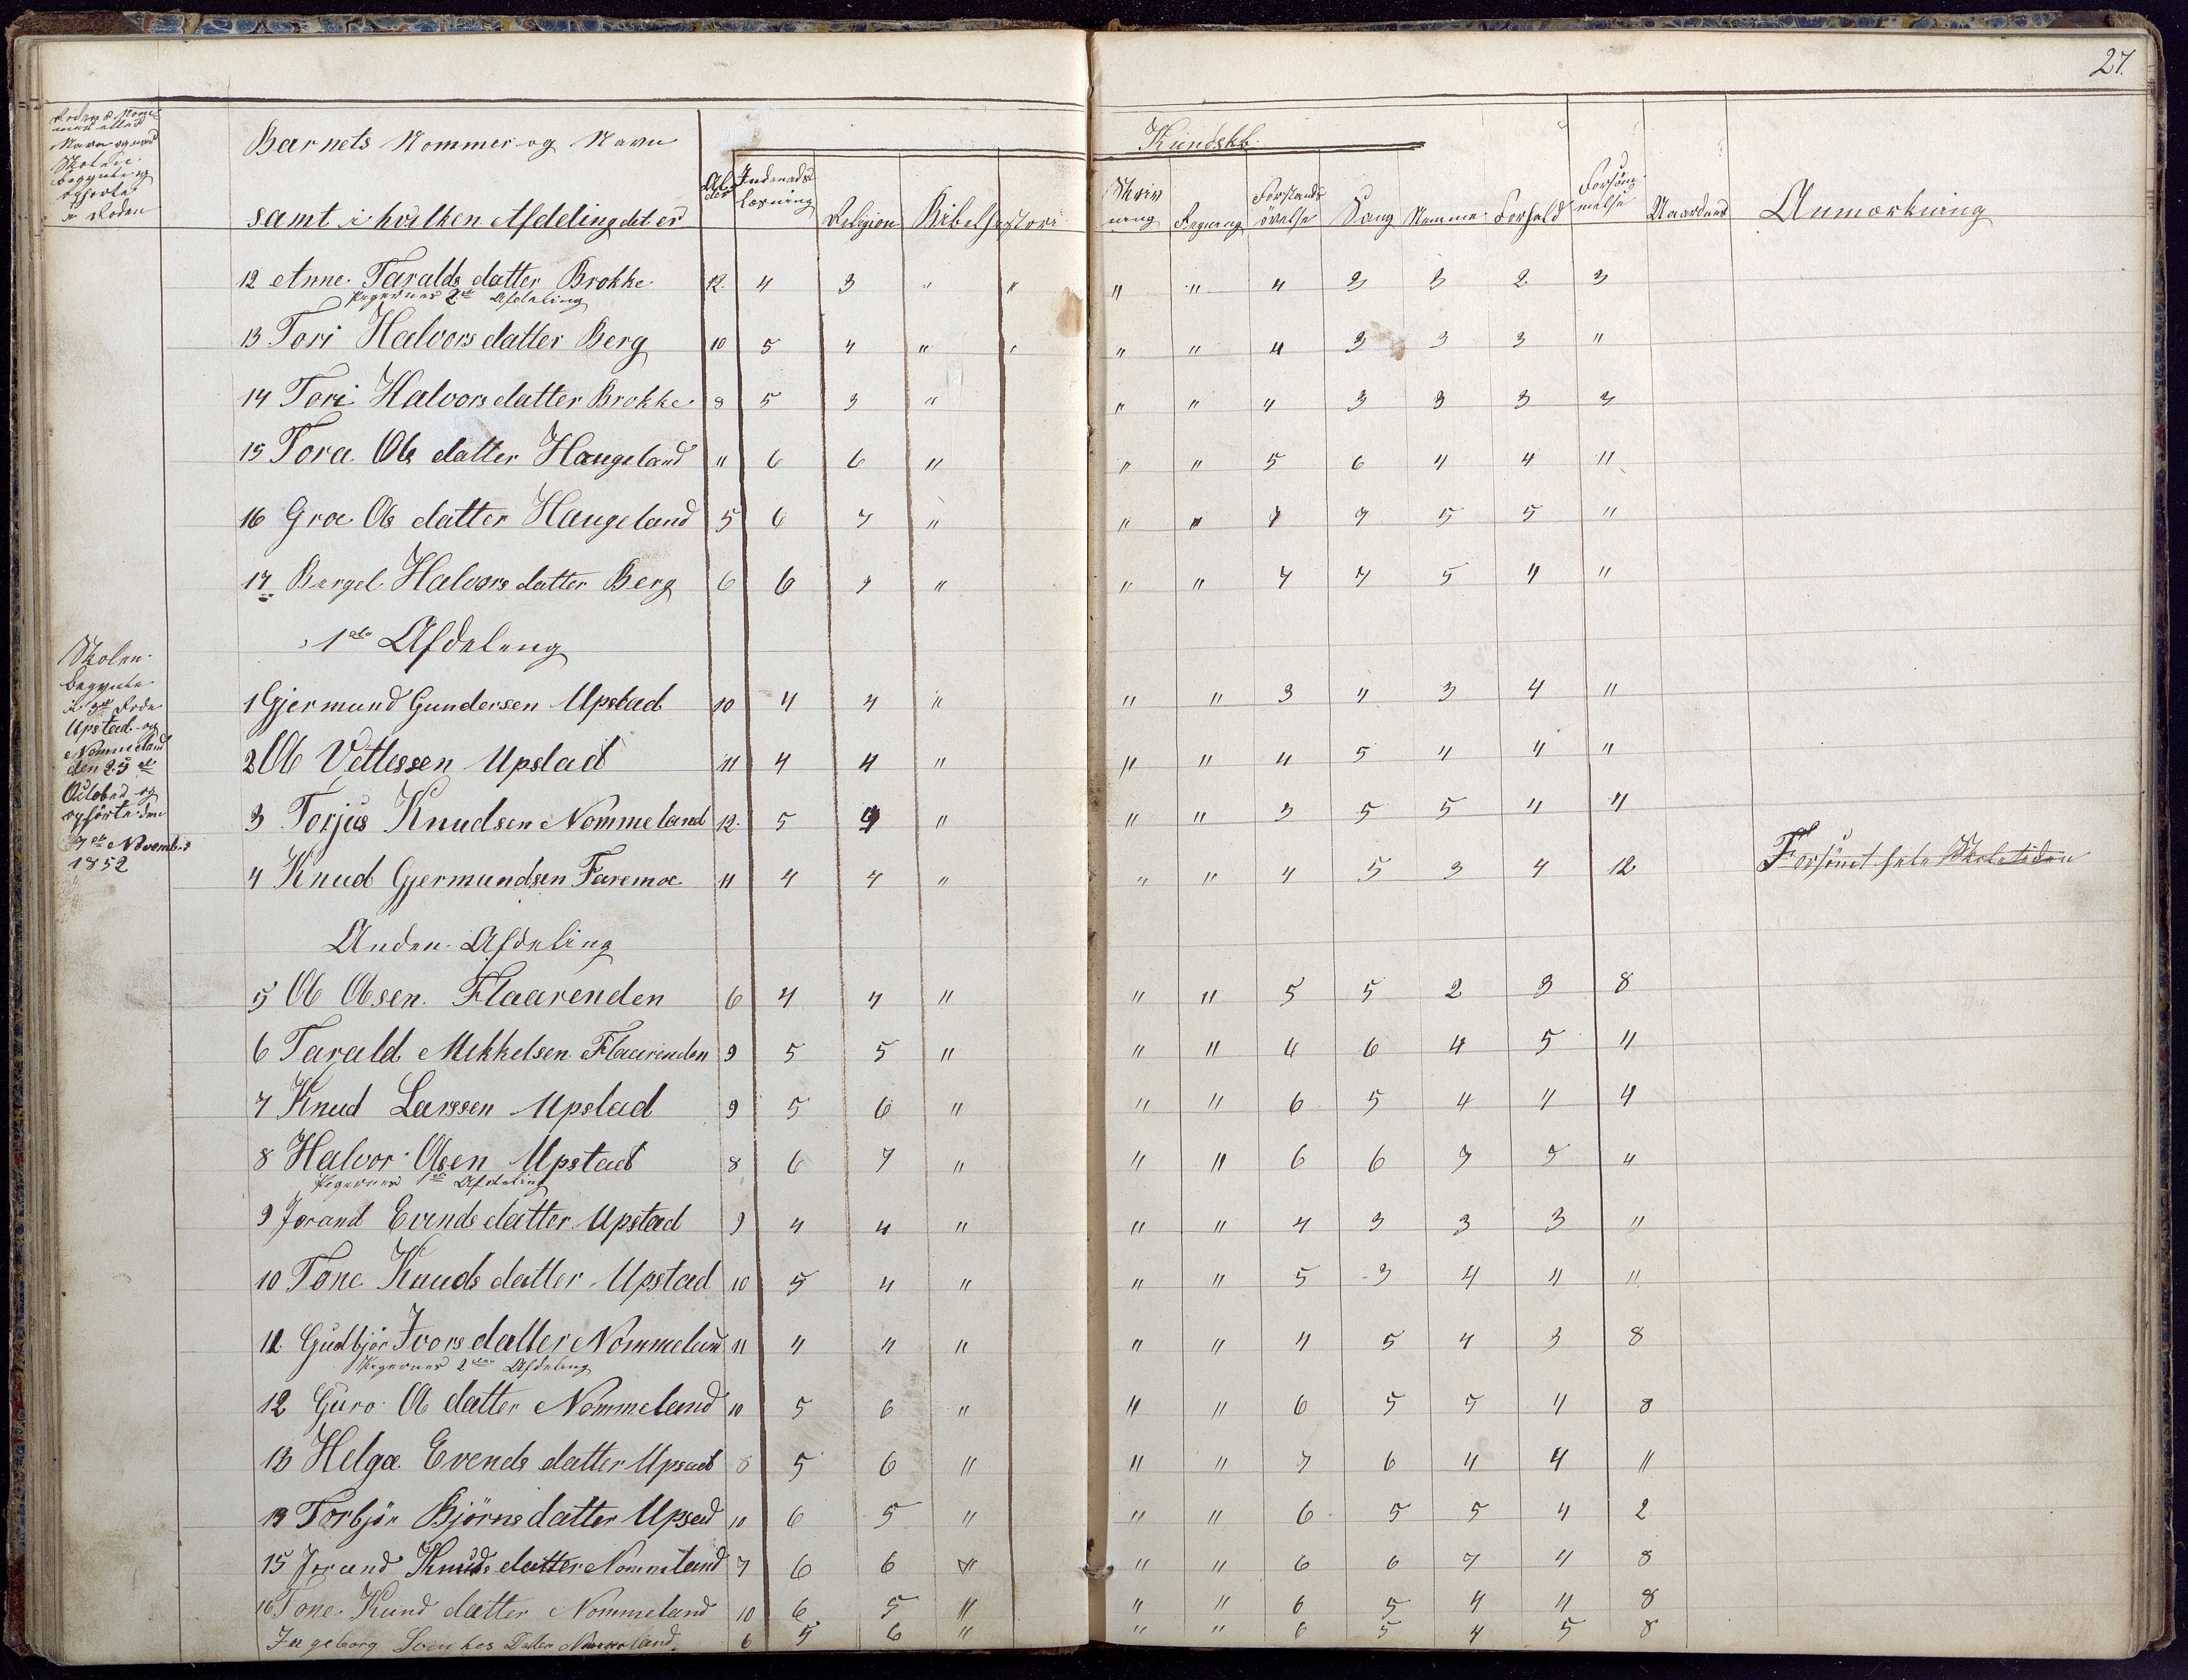 27.
Rodens Nom-
mer eller
Navn og naar
Skolen
begynte og
ophørte
i Roden
Barnets Nommer og Navn
samt i hvilken Afdeling det er
Al-
der
Kundskb.
Indenads
Læsning
Religion
Bibelhistori
Skriv
ning
Regning
Forstands
øvelse
Sang
Nemme
Forhold
Forsøm-
melse
Anmærkning
12 Anne Taralds datter Brokke 12 4 3 " " " " 4 3 3 2 3
Pigernes 2den Afdeling
13 Tori Halvors datter Berg 10 5 4 " " " " 4 3 3 3 "
14 Tori Halvors datter Brokke 8 5 3 " " " 4 3 3 3 3
15 Tora Ols datter Haugeland 11 6 6 " " " 5 6 4 4 "
16 Groe Ols datter Haugeland 5 6 7 " " " 7 7 5 5 "
17 Bergel Halvors datter Berg 6 6 7 " " " 7 7 5 4 "
1ste Afdeleng
Skolen
begynte
i 3de Rode
Upstad og
Nommeland
den 25de
October og
ophørte den
7de November
1852
1 Gjermund Gundersen Upstad 10 4 4 " " " 3 4 3 4 "
2 Ole Vettessen Upstad 11 4 4 " " " 4 5 4 4 "
3 Torjus Knudsen Nommeland 12 5 4 " " " 3 5 5 4 4
4 Knud Gjermundsen Faremoe 11 4 4 " " " 4 5 3 4 12 Forsömt hele Skoletiden
Anden Afdeling
5 Ole Olsen Flaarenden 6 4 4 " " " 5 5 2 3 8
6 Tarald Mikkelsen Flaarenden 9 5 5 " " " 6 6 4 5 "
7 Knud Larssen Upstad 9 5 6 " " " 6 5 4 4 4
8 Halvor Olsen Upstad 8 6 7 " " " 6 6 7 5 "
Pigernes 1ste Afdeling
9 Jorand Evends datter Upstad 9 4 4 " " " 4 3 3 3 "
10 Tone Knuds datter Upstad 10 5 4 " " " 5 3 4 4 "
11 Gudbjör Ivors datter Nommeland 11 4 4 " " " 4 5 4 3 8
Pigernes 2den Afdeling
12 Guro Ole datter Nommeland 10 5 6 " " " 6 5 5 4 8
13 Helge Evends datter Upsad 8 5 6 " " " 7 6 4 4 "
14 Torbjör Björns datter Upsad 10 6 5 " " " 6 5 5 4 2
15 Jorand Knuds datter Nommeland 7 6 6 " " " 6 6 7 4 8
16 Tone Kund datter Nommeland 10 6 5 " " " 6 5 4 4 8
Ingeborg Datter 6 5 6 " " " 6 5 4 5 8